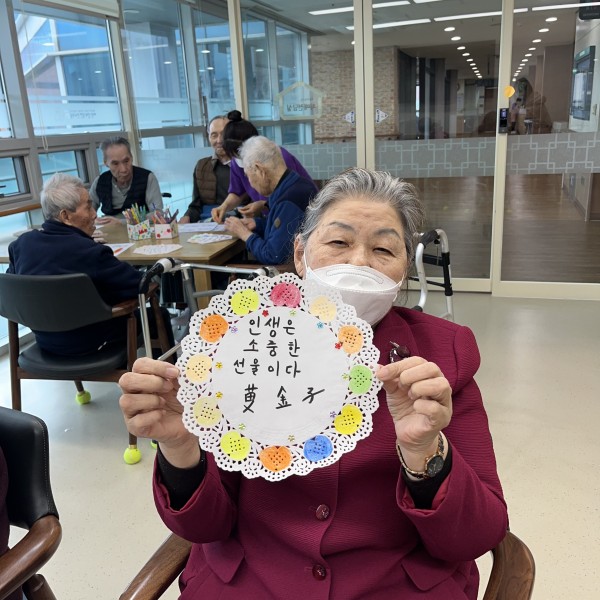 인생은
소중한
선물이다
黃金子